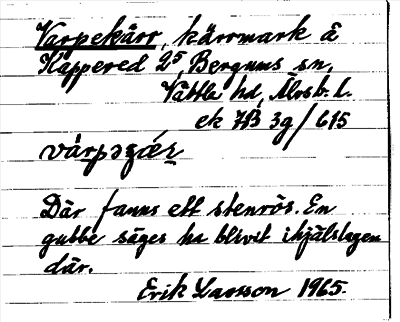 Varpekärr, kärrmark å
Käppered 2⁵, Bergums sn,
Vättle hd, Älvsb. l.
ek 7B 3g/615
vàrpəʒǽr
Där fanns ett stenrös. En
gubbe säges ha blivit ihjälslagen
där.
Erik Larsson 1965.